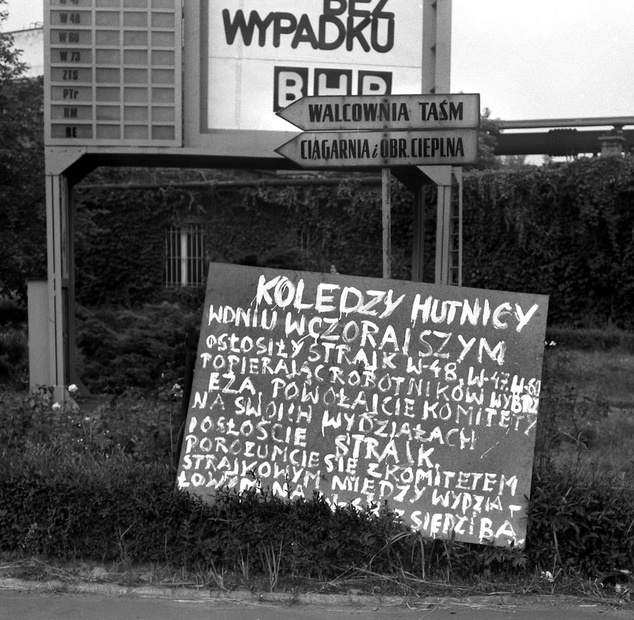 W 48
W 60
W 73
ZTS
PTr
RM
RE
BEZ
WYPADKU
BHP
WALCOWNIA TAŚM
CIĄGARNIA i OBR. CIEPLNA
KOLEDZY HUTNICY
WDNIU WCZORAJSZYM
OGŁOSIŁY STRAJK W-48, W-47, W-60
POPIERAJĄC ROBOTNIKÓW WYBRZ
EŻA POWOŁAJCIE KOMITETY
NA SWOICH WYDZIAŁACH
OGŁOŚCIE STRAJK
POROZUMCIE SIĘ Z KOMITETEM
STRAJKOWYM MIĘDZY WYDZIA-
ŁOWYM NA SIEDZIBA